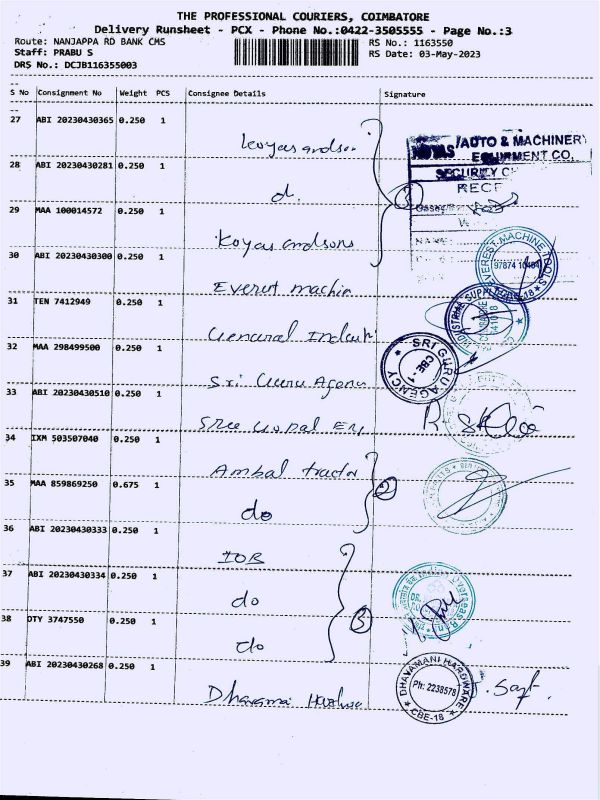 THE PROFESSIONAL COURIERS, COIMBATORE
Delivery Runsheet - PCX - Phone No.:0422-3505555 - Page No.:3
Route: NANJAPPA RD BANK CMS RS No.: 1163550
Staff: PRABU S RS Date: 03-May-2023
DRS No.: DCJB116355003
S No Consignment No Weight PCS Consignee Details Signature
27 ABI 20230430365 0.250 1
Koyas andson
28 ABI 20230430281 0.250 1
d.
29 MAA 100014572 0.250 1
Koyas andsons
1
AUTO & MACHINERY
EQUIPMENT CO.
SECURITY
30 ABI 20230430300 0.250 1
Everest machin
EVEREST MACHINE TOOLS
97874
31 TEN 7412949 0.250 1
General Indent
INDUSTRIAL SUPPL
32 MAA 298499500 0.250 1
Sri Guru Agenc
SRI GURU AGENCY
CBE-1
33 ABI 20230430510 0.250 1
Sree Gopal En
34 IXM 503507040 0.250 1
Ambal tractor
35 MAA 859869250 0.675 1
do
2
36 ABI 20230430333 0.250 1
IOB
37 ABI 20230430334 0.250 1
do
38 DTY 3747550 0.250 1
do
3
Overseas
39 ABI 20230430268 0.250 1
Dhavamani Hardware
DHAVAMANI HARDWARE
Ph: 2238578
CBE-18